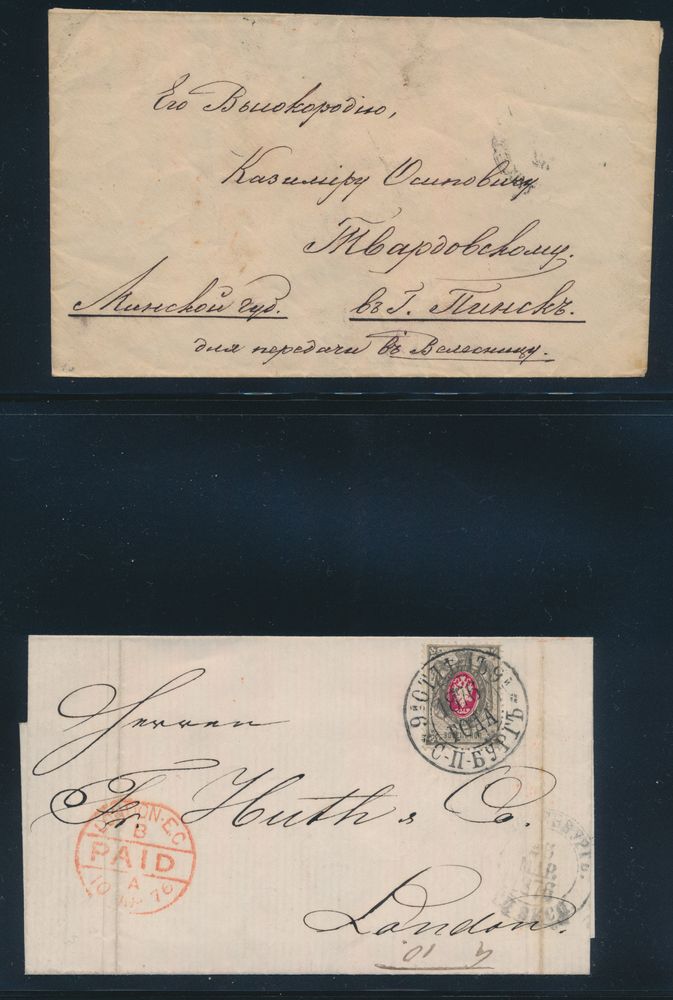 Его Высокородію,
Казимѣру Осиповичу
Твардовскому.
Минской губ. въ г. Пинскъ.
для передачи въ Велесницу.
Herren
Fr. Huth & Co.
London.
LONDON·E.C
B
PAID
A
10 76
ГОДА
С-П-БУРГЪ
10